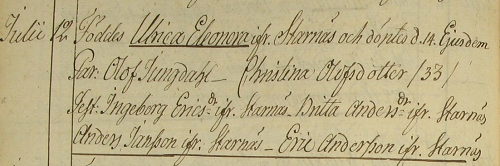 Julii 12 Föddes Ulrica Eleonora ifr. Skarnäs och döptes d. 14. Ejusdem
Par: Olof Ljungdahl – Christina Olofsdotter /33/
Test: Ingeborg Ericsdr ifr. Skarnäs – Britta Andersdr ifr. Skarnäs
Anders Janson ifr. Skarnäs – Eric Anderson ifr. Skarnäs